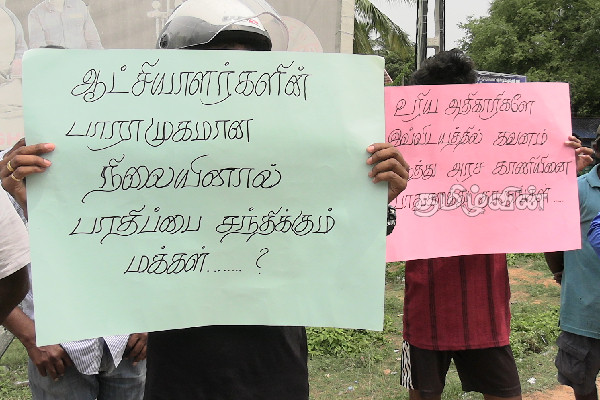 ஆட்சியாளர்களின்
பாராமுகமான
நிலையினால்
பாதிப்பை சந்திக்கும்
மக்கள்........?
உரிய அதிகாரிகளே
இவ்விடயத்தில் கவனம்
அரச காணியினை
தமிழ்வின்